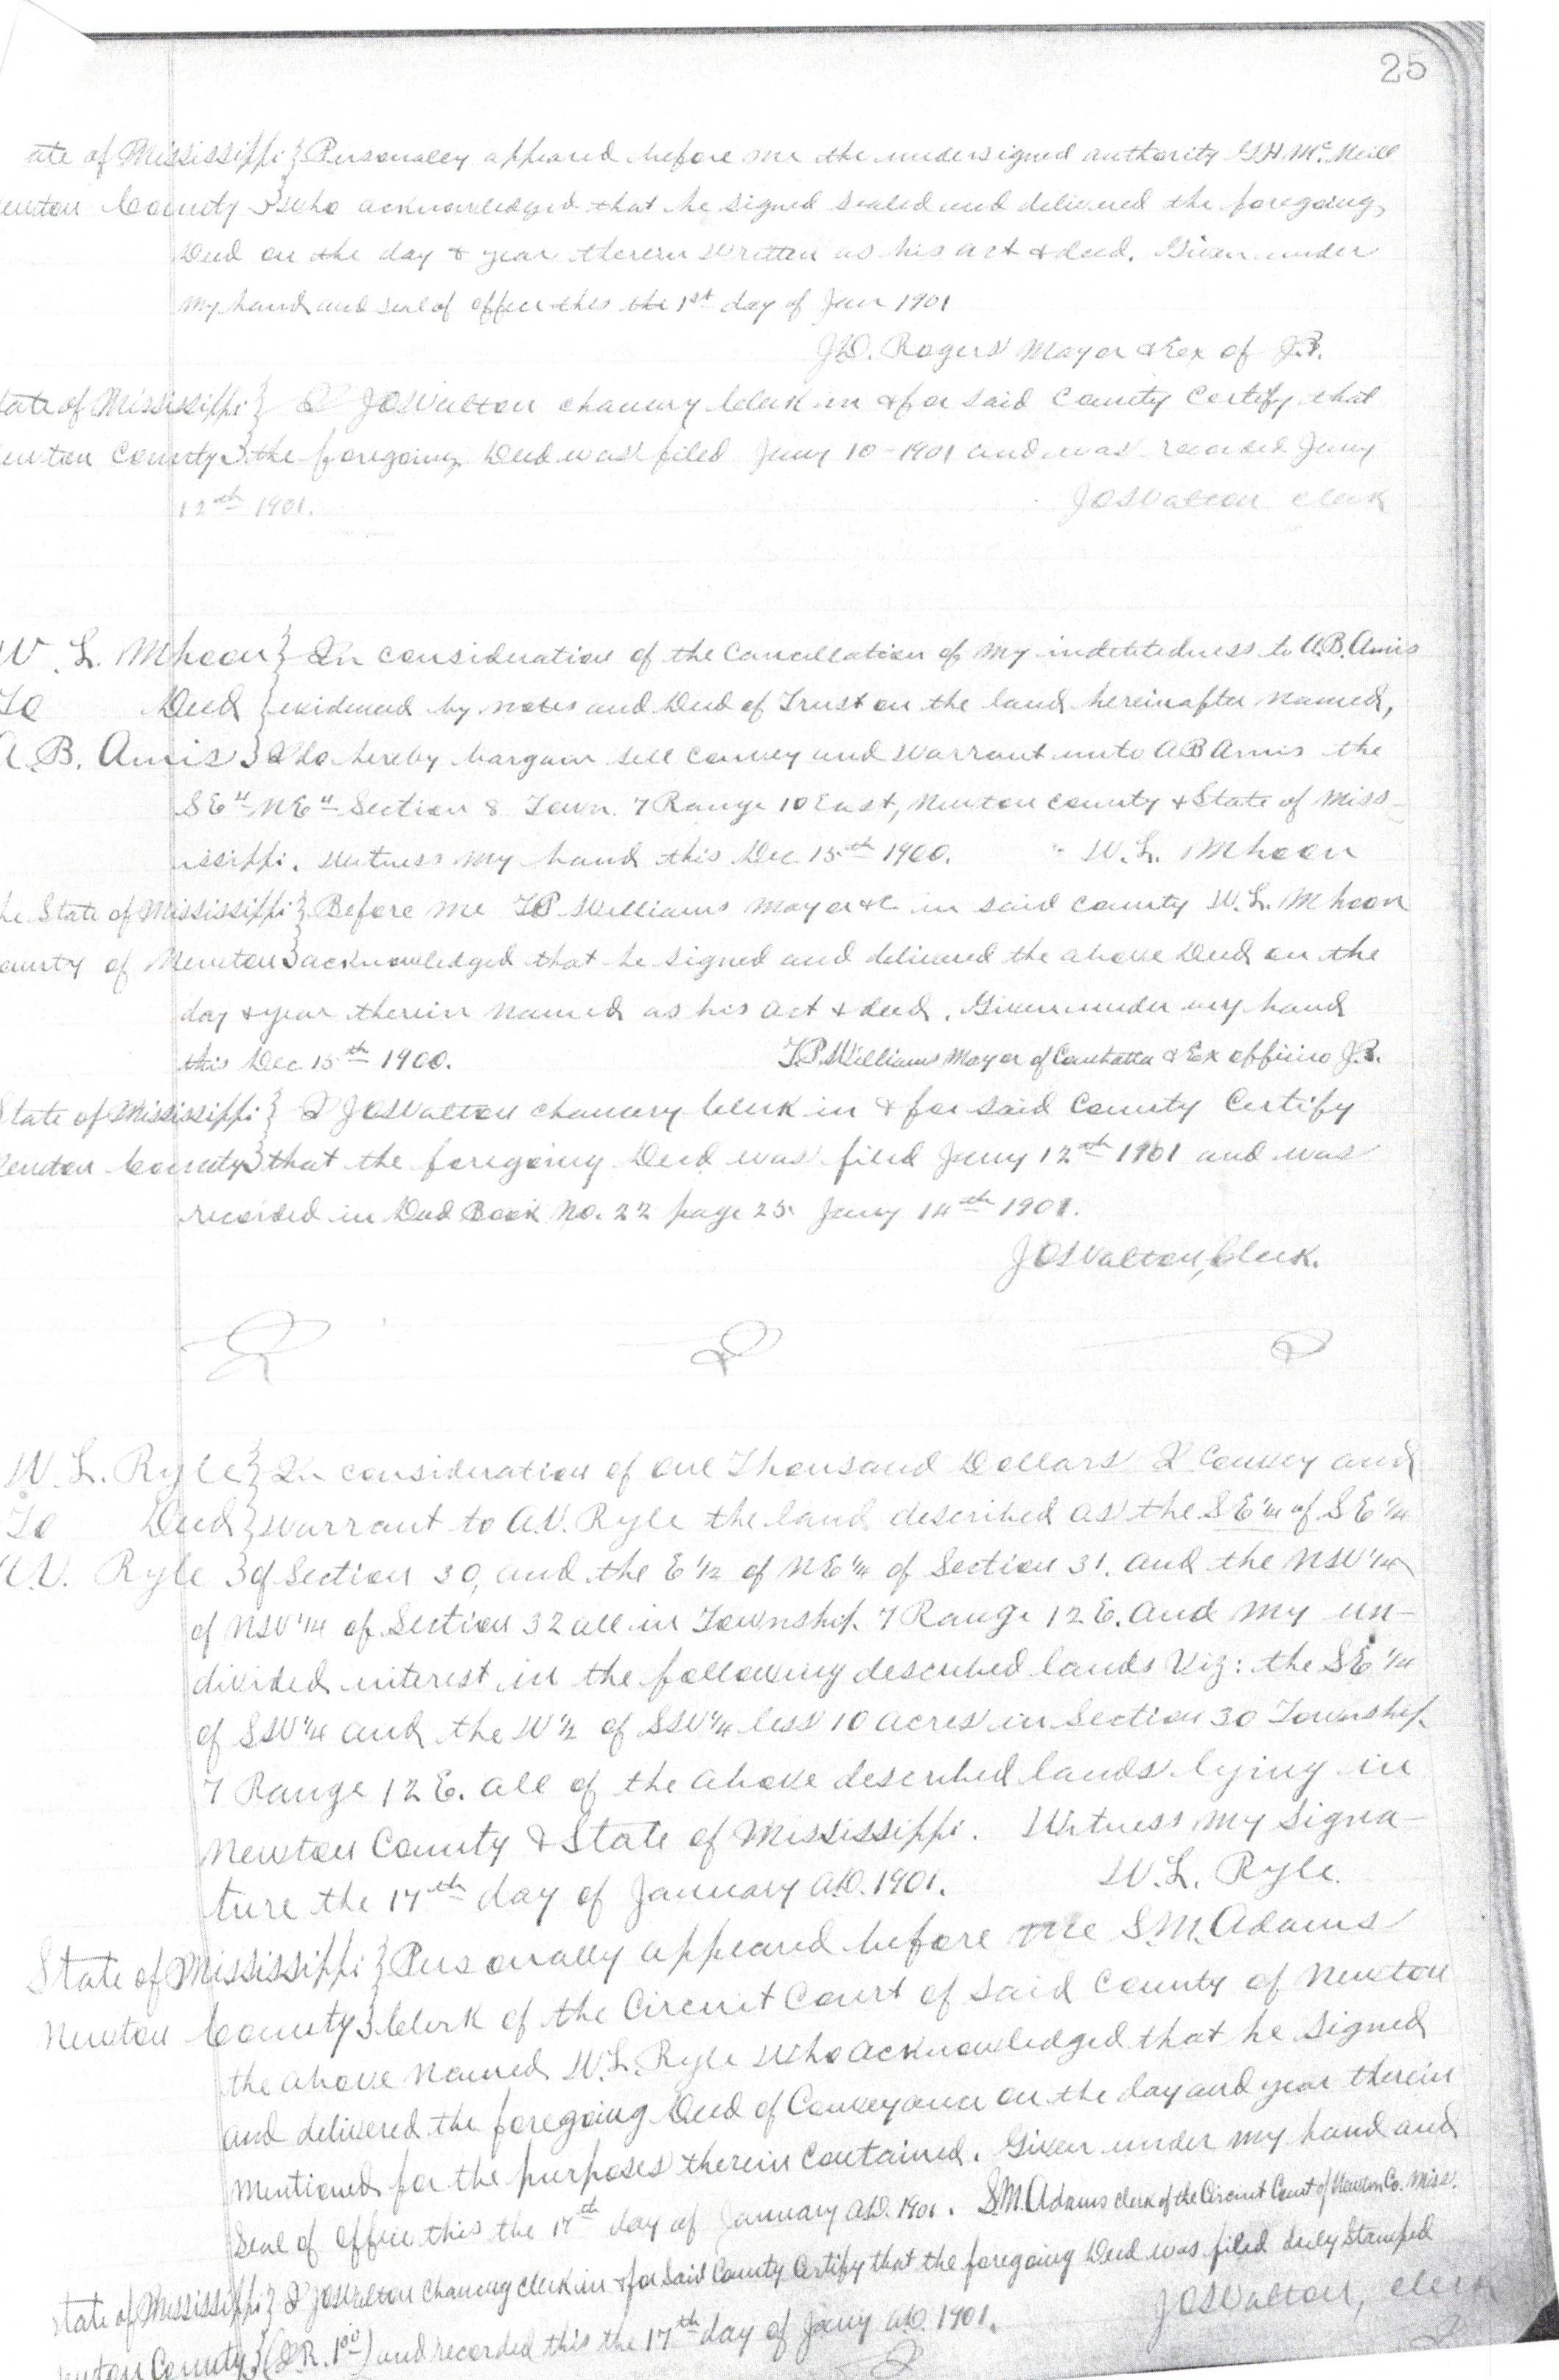 25
ate of Mississippi } Personally appeared before me the undersigned authority G.H. McNeill
ewton County } who acknowledged that he signed sealed and delivered the foregoing
Deed on the day & year therein written as his act & deed. Given under
my hand and seal of office this the 1st day of Jan 1901
J.D. Rogers Mayor & Ex of J.P.
tate of Mississippi } I J.O. Walton chancery Clerk in & for said County Certify that
ewton County } the foregoing Deed was filed Jany 10-1901 and was recorded Jany
12th 1901. J O Walton Clerk
W. L. Mhoon } In consideration of the Cancellation of my indebtedness to A.B. Amis
To Deed { evidenced by notes and Deed of Trust on the land hereinafter named,
A. B. Amis } I do hereby bargain sell convey and warrant unto A B Amis the
SE¼ NE¼ Section 8 Town. 7 Range 10 East, Newton County & State of Miss-
issippi. Witness my hand this Dec. 15th 1900. W. L. Mhoon
he State of Mississippi } Before me T.P. Williams Mayor &c in said County W. L. Mhoon
ounty of Newton } acknowledged that he signed and delivered the above Deed on the
day & year therein named as his act & deed. Given under my hand
this Dec 15th 1900. T.P. Williams Mayor of Conhatta & Ex officio J.P.
State of Mississippi } I J O Walton chancery Clerk in & for said County Certify
Newton County } that the foregoing Deed was filed Jany 12th 1901 and was
recorded in Deed Book No. 22 page 25. Jany 14th 1901.
J O Walton, Clerk.
W. L. Ryle } In consideration of One Thousand Dollars I Convey and
To Deed } warrant to A.V. Ryle the land described as the SE¼ of SE¼
A.V. Ryle } of Section 30, and the E½ of NE¼ of Section 31. and the NW¼
of NW¼ of Section 32 all in Township 7 Range 12 E. and my un-
divided interest in the following described lands Viz: the SE¼
of SW¼ and the W½ of SW¼ less 10 acres in Section 30 Township
7 Range 12 E. all of the above described lands lying in
Newton County & State of Mississippi. Witness my signa-
ture the 17th day of January A.D. 1901. W. L. Ryle.
State of Mississippi } Personally appeared before me S.M. Adams
Newton County } Clerk of the Circuit Court of said County of Newton
the above named W. L. Ryle who acknowledged that he signed
and delivered the foregoing Deed of Conveyance on the day and year therein
mentioned for the purposes therein contained. Given under my hand and
seal of office this the 17th day of January A.D. 1901. S.M. Adams Clerk of the Circuit Court of Newton Co. Miss.
State of Mississippi } I J O Walton Chancery Clerk in & for said County Certify that the foregoing Deed was filed duly stamped
ewton County } (I.R. 1.00) and recorded this the 17th day of Jany A.D. 1901. J O Walton, Clerk